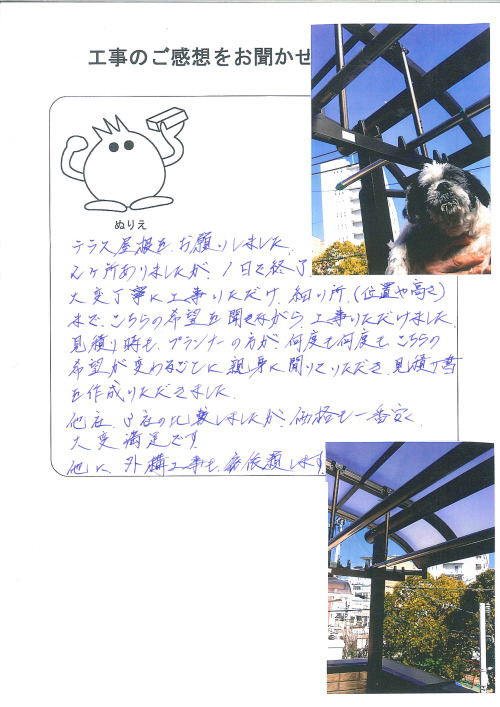 工事のご感想をお聞かせ
ぬりえ
テラス屋根を、お願いしました。
2ヶ所ありましたが、1日で終了
大変丁寧に工事いただけ、細い所、(位置や高さ)
まで、こちらの希望を聞きながら、工事いただけました。
見積り時も、プランナーの方が、何度も何度も、こちらの
希望が変わるごとに、親身に聞いてくださり、見積書
を作成いただきました。
他社、3社の比較しましたが、価格も一番安く、
大変満足です。
他に、外構工事も、依頼します